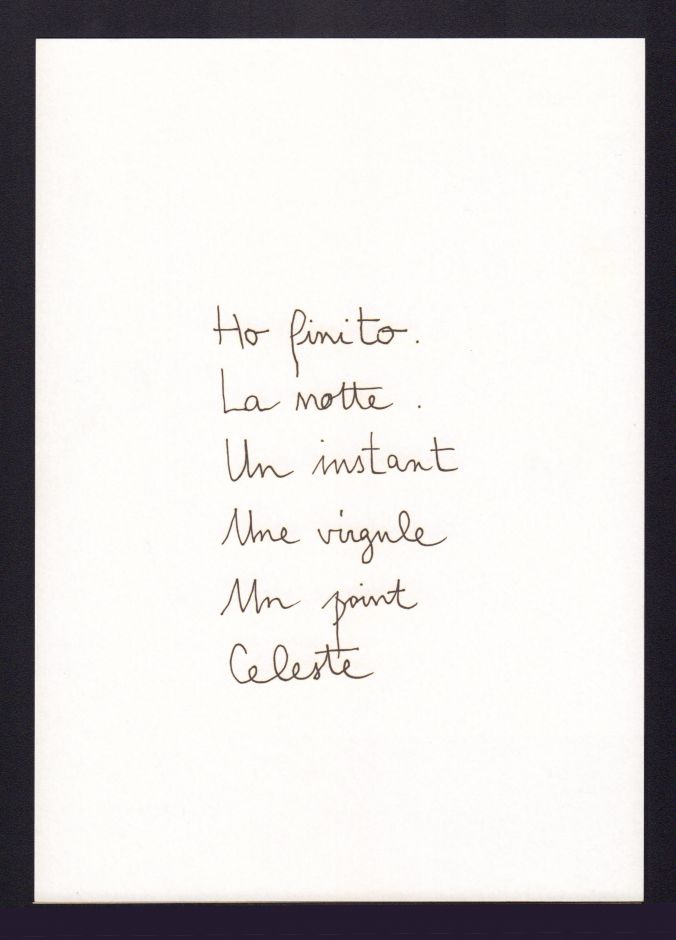 Ho finito.
La notte.
Un instant
Une virgule
Un point
Celeste